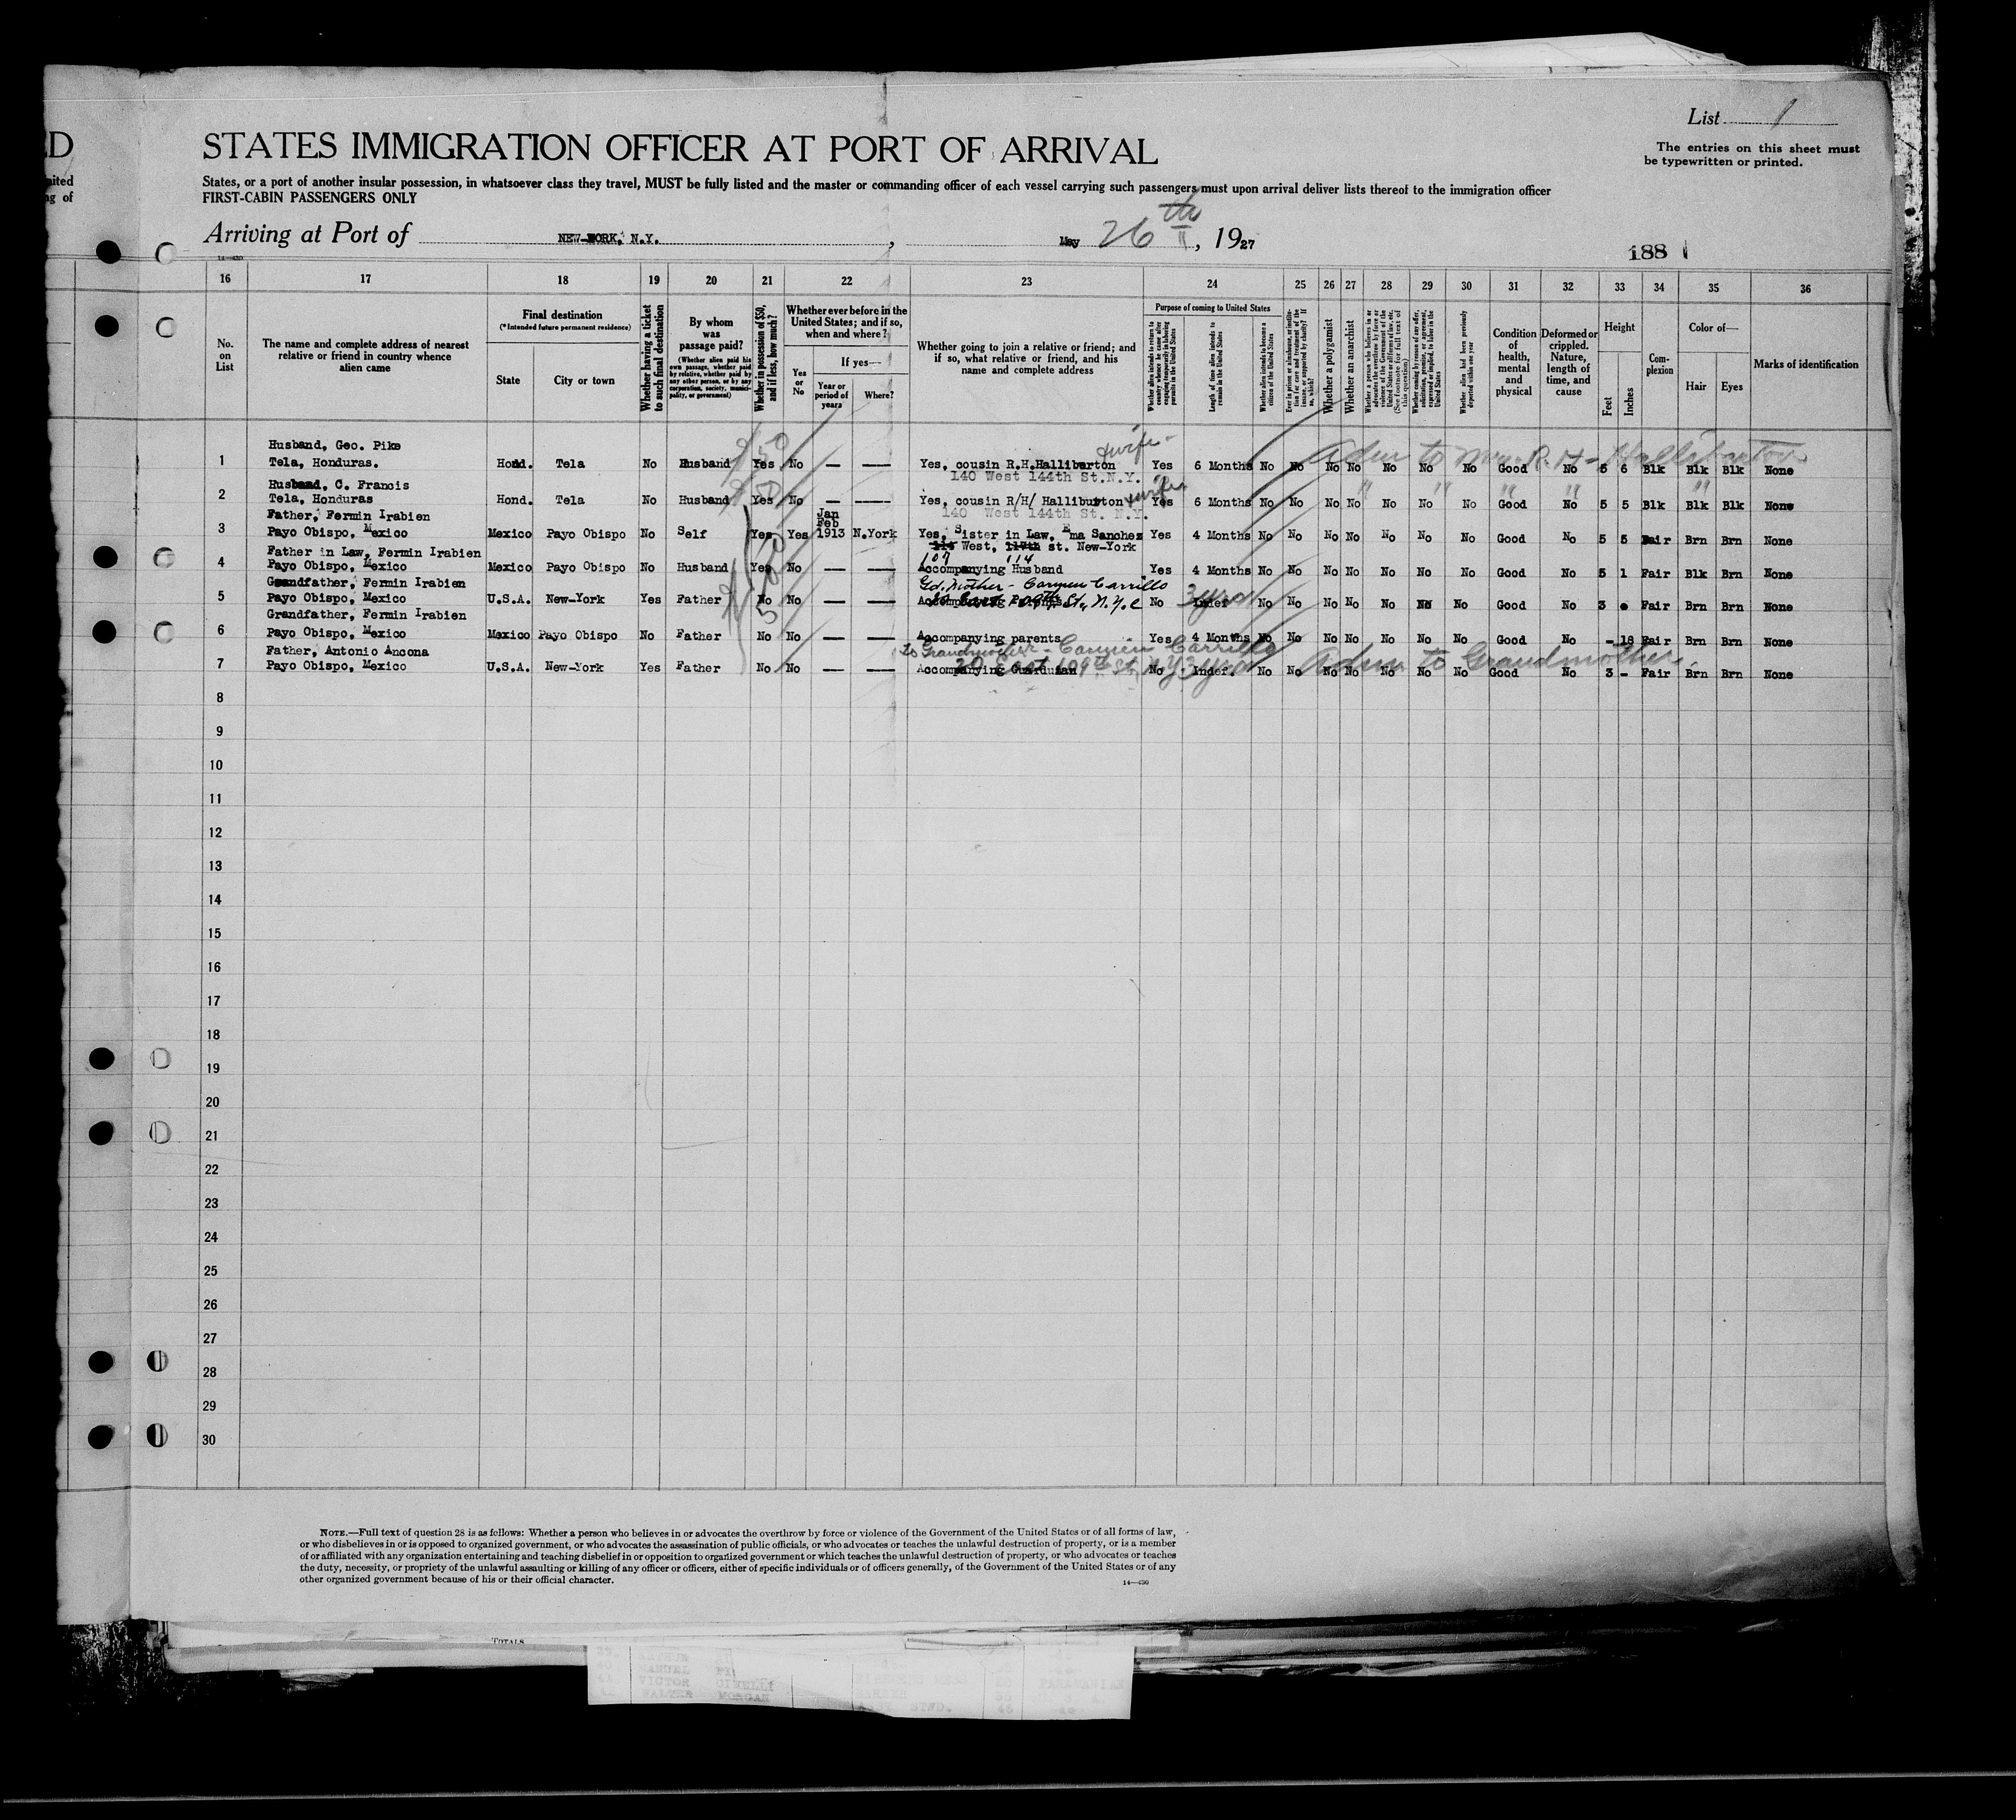 List 1
The entries on this sheet must
be typewritten or printed.
ED
STATES IMMIGRATION OFFICER AT PORT OF ARRIVAL
States, or a port of another insular possession, in whatsoever class they travel, MUST be fully listed and the master or commanding officer of each vessel carrying such passengers must upon arrival deliver lists thereof to the immigration officer
FIRST-CABIN PASSENGERS ONLY
Arriving at Port of NEW-YORK, N.Y., May 26th, 1927
188
16 17 18 19 20 21 22 23 24 25 26 27 28 29 30 31 32 33 34 35 36
No. on List
The name and complete address of nearest relative or friend in country whence alien came
Final destination
(*Intended future permanent residence)
State
City or town
Whether having a ticket to such final destination
By whom was passage paid?
(Whether alien paid his own passage, whether paid by relative, whether paid by any other person, or by any corporation, society, municipality, or government)
Whether in possession of $50, and if less, how much?
Whether ever before in the United States; and if so, when and where?
Yes or No
If yes—
Year or period of years
Where?
Whether going to join a relative or friend; and if so, what relative or friend, and his name and complete address
Purpose of coming to United States
Whether alien intends to return to country whence he came after engaging temporarily in laboring pursuits in the United States
Length of time alien intends to remain in the United States
Whether alien intends to become a citizen of the United States
Whether a polygamist
Whether an anarchist
Whether alien had been previously deported within one year
Condition of health, mental and physical
Deformed or crippled. Nature, length of time, and cause
Height
Feet
Inches
Complexion
Color of—
Hair
Eyes
Marks of identification
Husband, Geo. Pike
1 Tela, Honduras. Hond. Tela No Husband Yes No — — Yes, cousin R.H.Halliburton & wife Yes 6 Months No No No No No No No Good No 5 6 Blk Blk Blk None
140 West 144th St.N.Y.
Adm to Mrs. R. H. Halliburton
Husband, C. Francis
2 Tela, Honduras Hond. Tela No Husband Yes No — — Yes, cousin R/H/ Halliburton & wife Yes 6 Months No No No No No No No Good No 5 5 Blk Blk Blk None
140 West 144th St. N.Y.
Father, Fermin Irabien
3 Payo Obispo, Mexico Mexico Payo Obispo No Self Yes Yes Jan Feb 1913 N.York Yes, Sister in Law, Ema Sanchez Yes 4 Months No No No No No No No Good No 5 5 Fair Brn Brn None
114 West, 117th st. New-York
107 114
Father in Law, Fermin Irabien
4 Payo Obispo, Mexico Mexico Payo Obispo No Husband Yes No — — Accompanying Husband Yes 4 Months No No No No No No No Good No 5 1 Fair Blk Brn None
Grandfather, Fermin Irabien
Gd. Mother - Carmen Carrillo
5 Payo Obispo, Mexico U.S.A. New-York Yes Father No No — — Accompanying Parents 20 East 109th St, N.Y.C No Indef 3 yrs No No No No No No No Good No 3 Fair Brn Brn None
Grandfather, Fermin Irabien
6 Payo Obispo, Mexico Mexico Payo Obispo No Father No No — — Accompanying parents Yes 4 Months No No No No No No No Good No - 18 Fair Brn Brn None
Father, Antonio Ancona
to Grandmother - Carmen Carrillo
7 Payo Obispo, Mexico U.S.A. New-York Yes Father No No — — Accompanying Guardian 20 East 109th St, N.Y. No Indef. 3 yrs No No No No No No No Good No 3 - Fair Brn Brn None
Adm to Grandmother.
8
9
10
11
12
13
14
15
16
17
18
19
20
21
22
23
24
25
26
27
28
29
30
NOTE.—Full text of question 28 is as follows: Whether a person who believes in or advocates the overthrow by force or violence of the Government of the United States or of all forms of law,
or who disbelieves in or is opposed to organized government, or who advocates the assassination of public officials, or who advocates or teaches the unlawful destruction of property, or is a member
of or affiliated with any organization entertaining and teaching disbelief in or opposition to organized government or which teaches the unlawful destruction of property, or who advocates or teaches
the duty, necessity, or propriety of the unlawful assaulting or killing of any officer or officers, either of specific individuals or of officers generally, of the Government of the United States or of any
other organized government because of his or their official character.
14—430
TOTALS
VICTOR
WALTER MORGAN